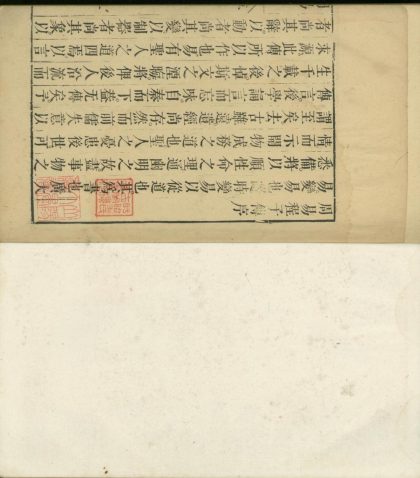 周易程子傳序
易變易也隨時變易以從道也其為書也廣大
悉備將以順性命之理通幽明之故盡事物之
情而示開物成務之道也聖人之憂患後世可
謂至矣去古雖遠遺經尚存然而前儒失意以
傳言後學誦言而忘味自秦而下蓋无傳矣予
生千載之後悼斯文之湮晦將俾後人沿流而
求源此傳所以作也易有聖人之道四焉以言
者尚其辭以動者尚其變以制器者尚其象以